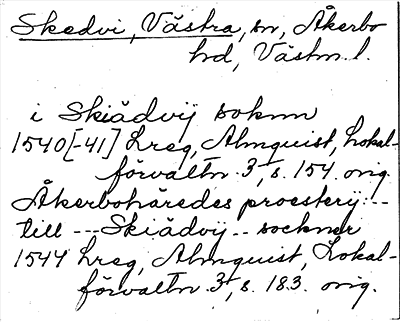 Skedvi, Västra, sn, Åkerbo
hd, Västm. l.
i Skiädvij soknn
1540[-41] Lreg, Almquist, Lokal-
förvaltn. 3, s. 154. orig.
Åkerbohäredes proesterij:--
till --- Skiädvij -- sockner
1544 Lreg, Almquist, Lokal-
förvaltn. 3, s. 183. orig.